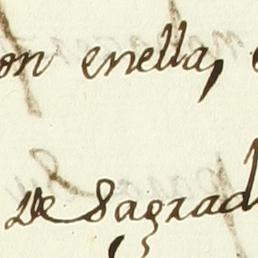 on enella,
de Sagrad